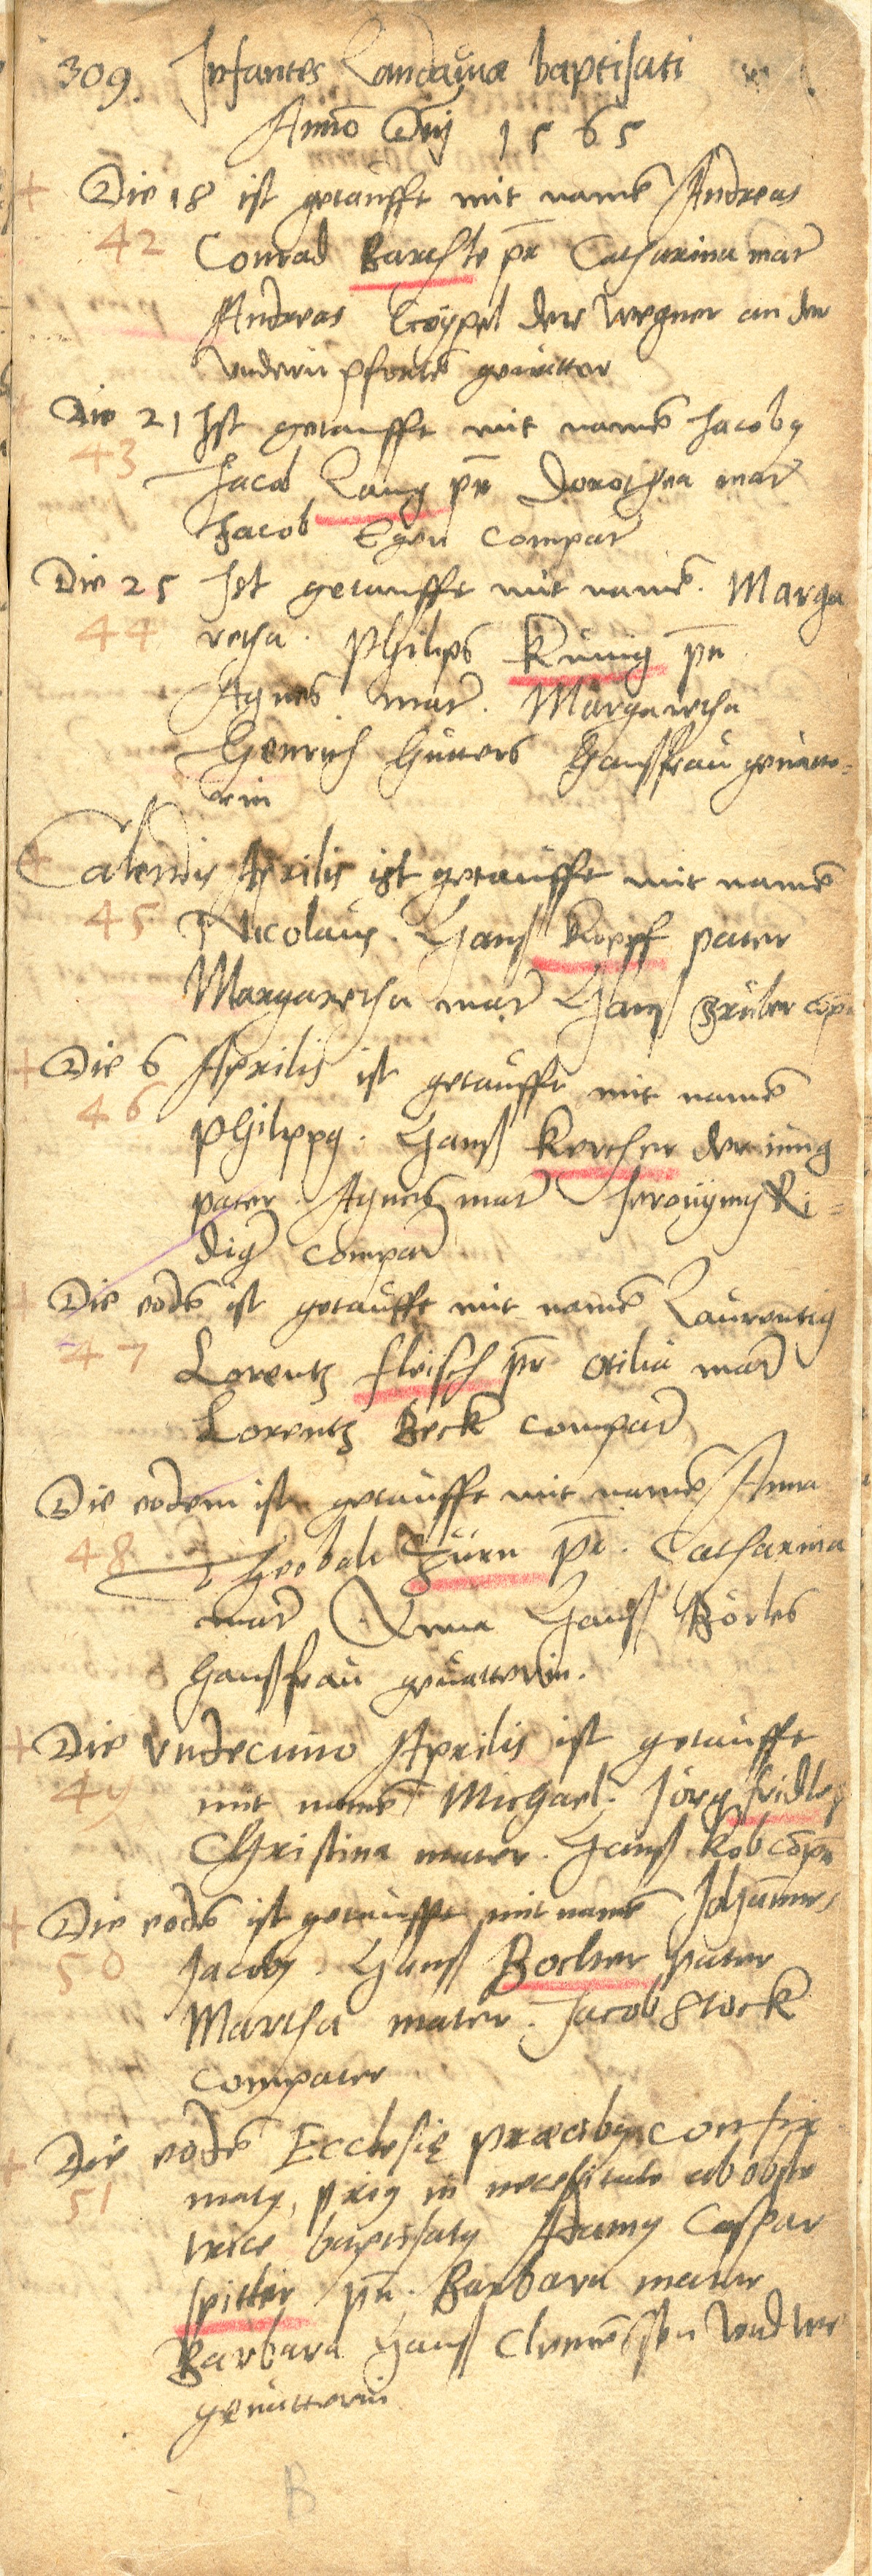 309. Infantes Landauiæ baptisati
Anno Dnj 1565
Die 18 ist getaufft mit namē Andreas
42 Conrad Barthle pr̄ Catharina mar̄
Andreas Göppel der Wegner an der
vndern pfortē geuatter
Die 21 Ist getaufft mit namē Jacobꝰ
43
Jacob Lang pr̄ Dorothea mar̄
Jacob Egen compar̄
Die 25 Ist getaufft mit namē. Marga
44 retha. Philips Künig pr̄
Agnes mar̄. Margaretha
Henrich Hütters haußfrau geuatt=
erin
Calendis Aprilis ist getaufft mit namē
45 Nicolaus. Hanß Kopff pater
Margaretha mar̄ Hanß Grüber cōp
Die 6 Aprilis ist getaufft mit namē
46
Philippꝰ. Hanß Kercher der iung
pater. Agnes mar̄ Jeronymꝰ Ri=
diger compar̄
Die eodē ist getaufft mit namē Laurentiꝰ
47
Lorentz fleisch pr̄ Otilia mar̄
Lorentz Beck compar̄
Die eodem ist getaufft mit namē Anna
48 Theobald Zürn pr̄. Catharina
mar̄ Anna Hanß Börles
haußfrau geuatterin.
Die vndecimo Aprilis ist getaufft
49 mit namē Michael. Jörg fridle
Christina mater. Hanß Kob cōp
Die eodē ist getaufft mit namē Johannes
50 Jacobꝰ. Hanß Bocher pater
Martha mater. Jacob Stock
compater
Die eodē Ecclesię precibꝰ confir
51 matꝰ, priꝰ in necessitate ab obste
trice baptisatꝰ Adamꝰ Caspar
spitler pr̄. Barbara mater
Barbara Hanß Clemēssen
geuatterin
B